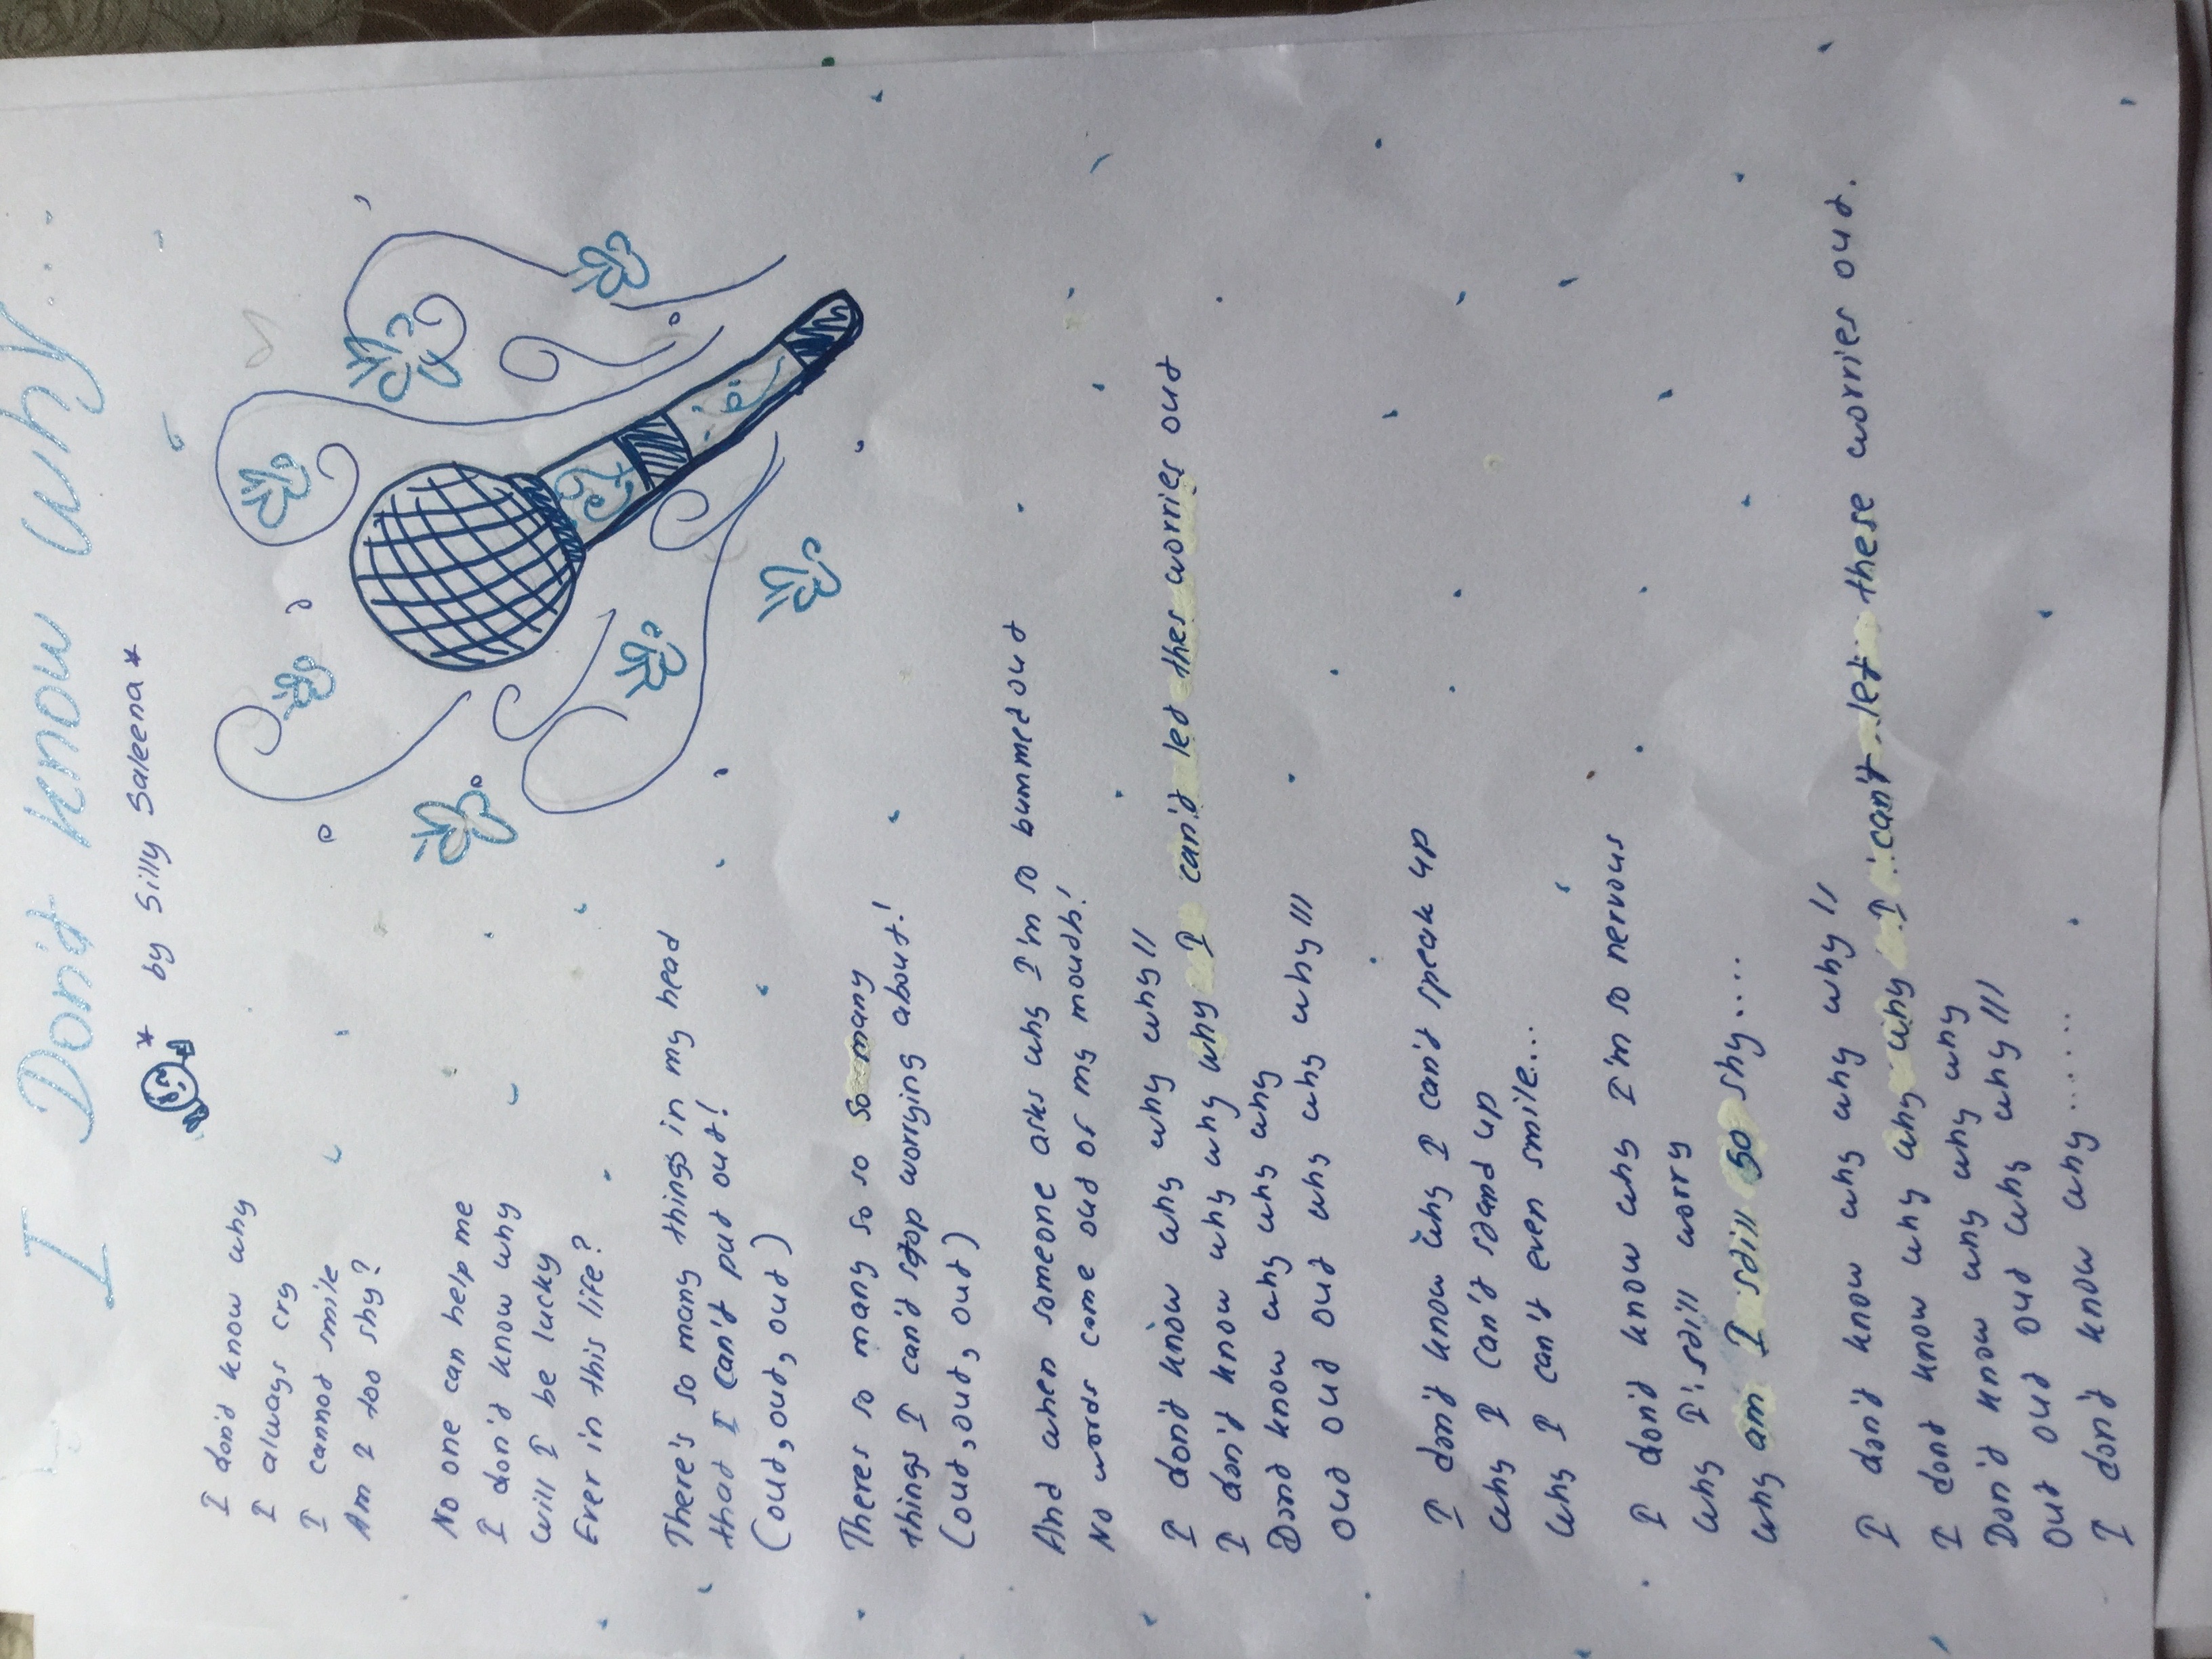 I Don't know why...
* by Silly Saleena *
I don't know why
I always cry
I cannot smile
Am I too shy?
No one can help me
I don't know why
will I be lucky
Ever in this life?
There's so many things in my head
that I can't put out!
(out, out, out)
Theres so many so so so many
things I can't stop worrying about!
(out, out, out)
And when someone asks why I'm so bummed out
No words come out of my mouth!
I don't know why why why why!!
I don't know why why why why I can't let thes worries out
Dont know why why why why
out out out out why why why why!!!
I don't know why I can't speak up
why I can't stand up
why I can't even smile...
I don't know why I'm so nervous
why I still worry
why am I still so shy....
I don't know why why why why!!
I dont know why why why why I can't let these worries out.
Don't know why why why why
out out out out why why why!!!
I don't know why.......